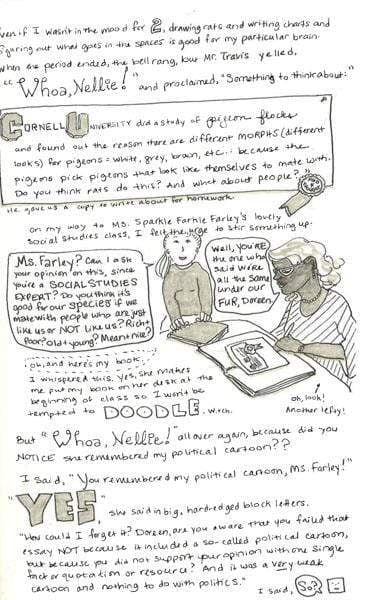 even if I wasn't in the mood for 2, drawing rats and writing charts and
figuring out what goes in the spaces is good for my particular brain.
When the period ended, the bell rang, but Mr. Travis yelled,
"Whoa, Nellie!" and proclaimed, "Something to think about:"
CORNELL UNIVERSITY did a study of pigeon flocks
and found out the reason there are different MORPHS (different
looks) for pigeons = white, grey, brown, etc.: because the
pigeons pick pigeons that look like themselves to mate with.
Do you think rats do this? And what about people?
He gave us a copy to write about for homework.
On my way to Ms. Sparkle Farkle Farley's lovely
social studies class, I felt the urge to stir something up.
Ms. Farley? Can I ask
your opinion on this, since
you're a SOCIAL STUDIES
EXPERT? Do you think it's
good for our species if we
mate with people who are just
like us or NOT like us? Rich +
Poor? old + young? Mean + nice?
Well, you're
the one who
said we're
all the same
under our
FUR, Doreen.
oh, and here's my book.
I whispered this. Yes, she makes
me put my book on her desk at the
beginning of class so I won't be
tempted to DOODLE.
oh, look!
Another lefty!
But "Whoa, Nellie!" all over again, because did you
NOTICE she remembered my political cartoon??
I said, "You remembered my political cartoon, Ms. Farley!"
"YES," she said in big, hard-edged block letters.
"How could I forget it? Doreen, are you aware that you failed that
essay NOT because it included a so-called political cartoon,
but because you did not support your opinion with one single
fact or quotation or resource? And it was a very weak
cartoon and nothing to do with politics."
I said, So?